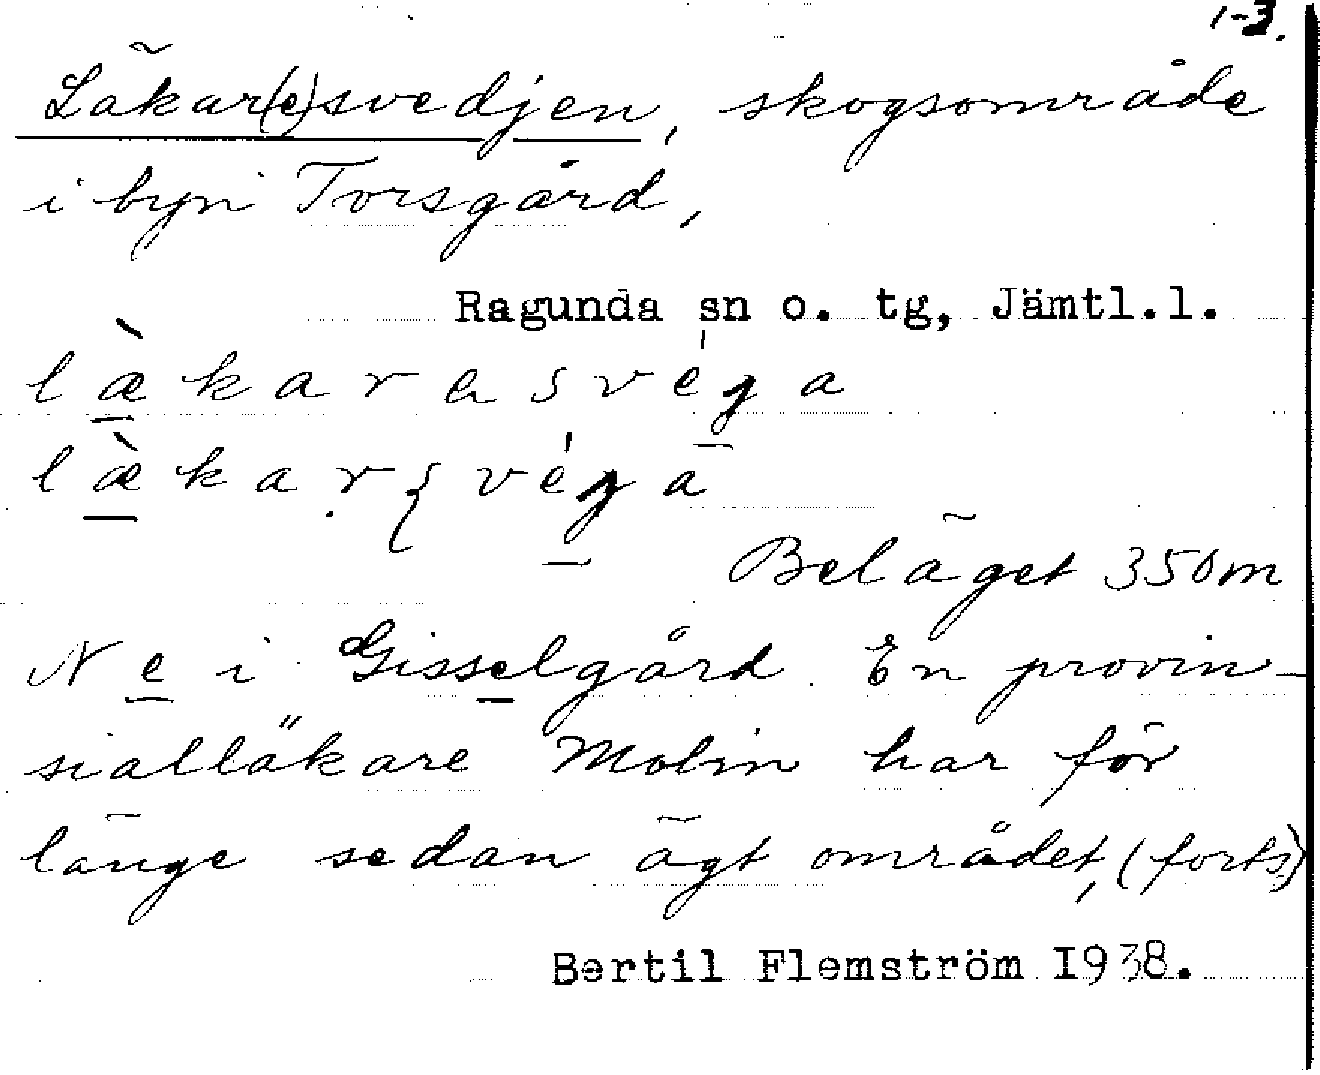 1-3.
Läkar(e)svedjen, skogsområde
i byn Torsgård,
Ragunda sn o. tg, Jämtl.l.
læ̀karasvéga
læ̀kaṛʃvéga
Beläget 350m
N e i Gisselgård. En provin-
sialläkare Molin har för
länge sedan ägt området, (forts)
Bertil Flemström 1938.